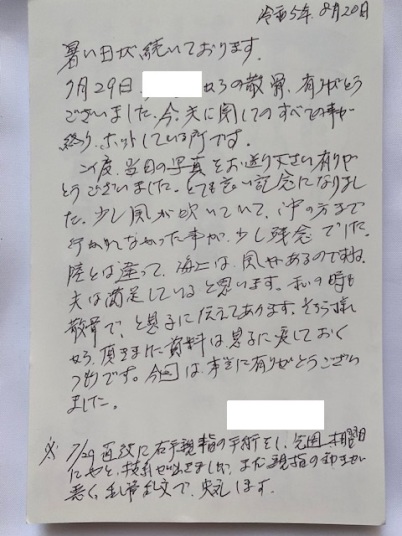 令和5年8月20日
暑い日が続いております。
7月29日、 の散骨、有りがとう
ございました。今、夫に関してのすべての事が
終り、ホットしている所です。
この度、当日の写真をお送り下さい有りが
とうございました。とても良い記念になりまし
た。少し風が吹いていて、沖の方まで
行かれなかった事が、少し残念でした。
陸とは違って、海上は、風があるのですね。
夫は満足していると思います。私の時も
散骨で、と息子に伝えてあります。そちら様
から頂きました資料は息子に渡しておく
つもりです。今回は本当に有りがとうござい
ました。
※ 7/29直後に右手親指の手術をし、先週木曜日
にやと、抜糸が出来ましたが、まだ親指の動きが
悪く、乱筆乱文で、失礼します。